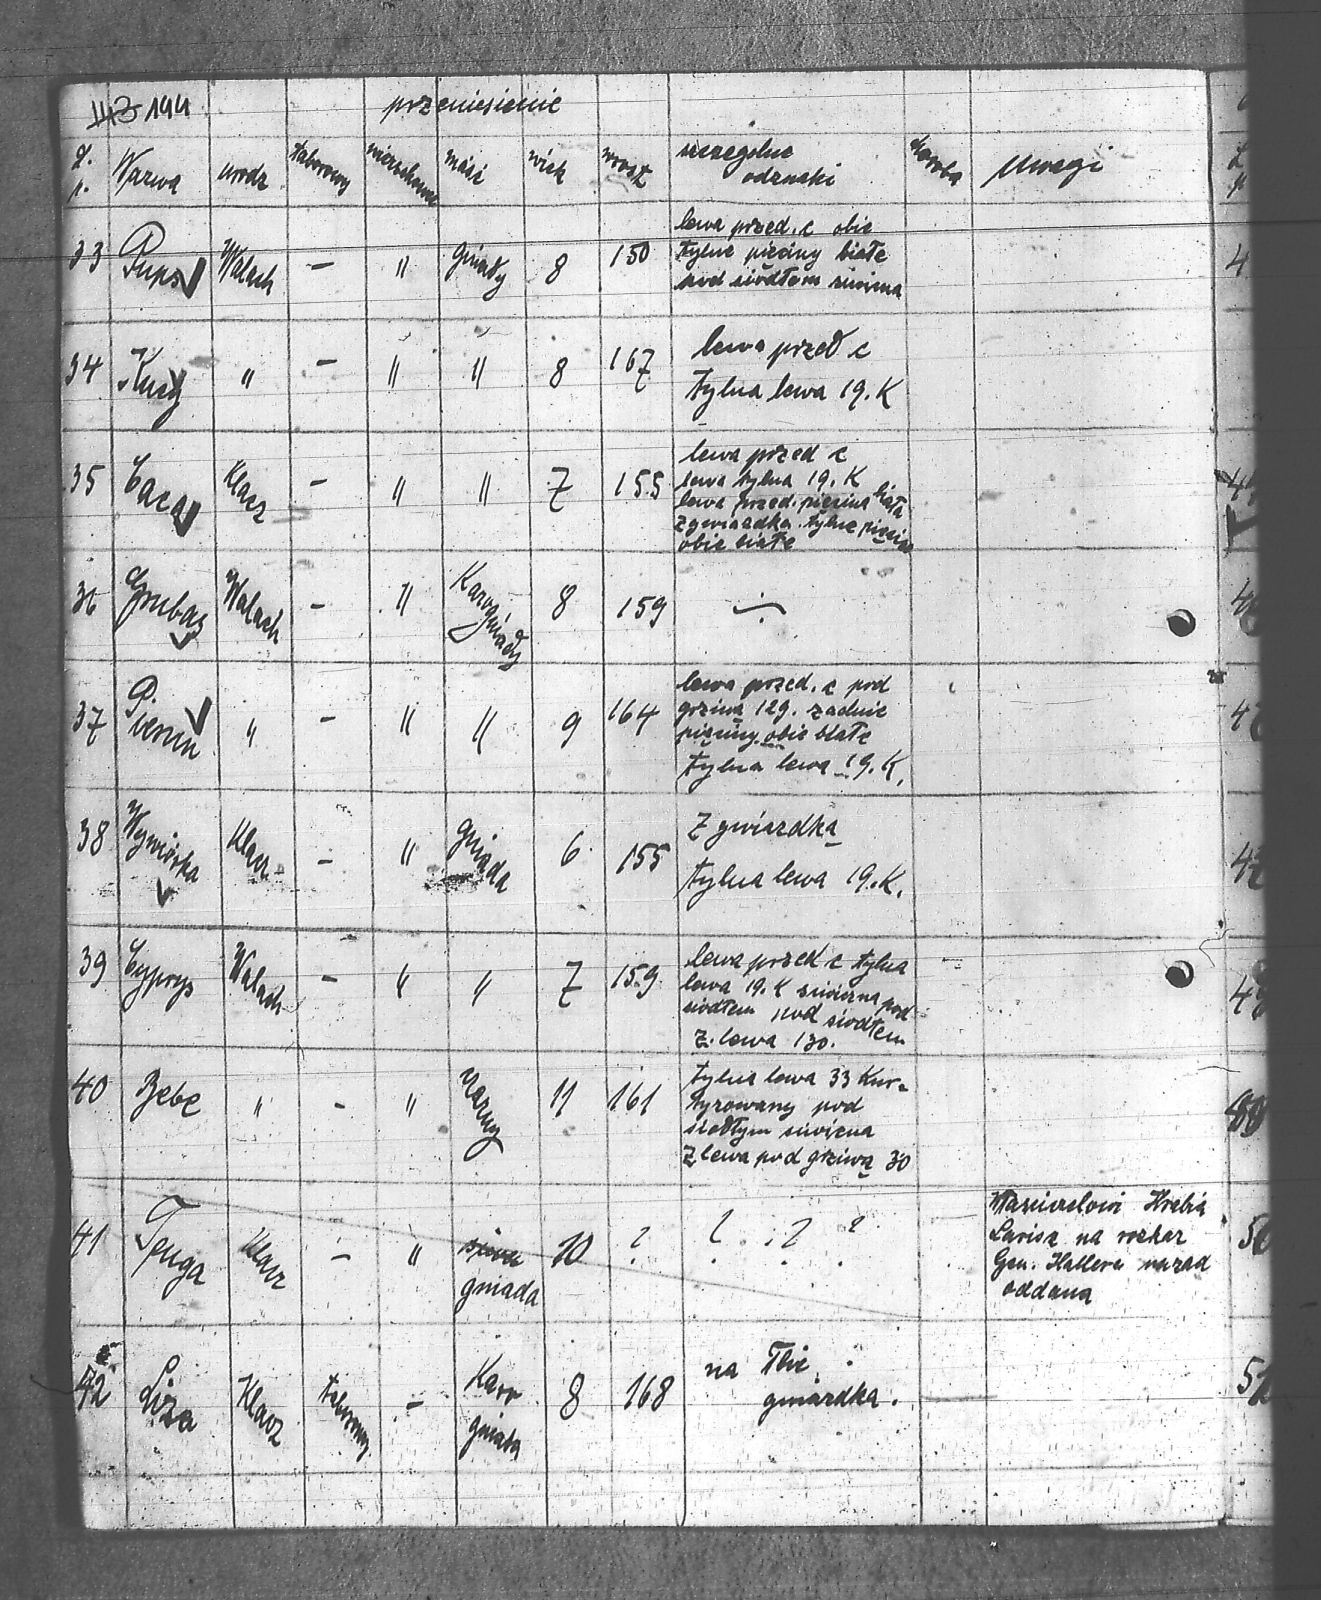 143 194 przeniesienie
L. p. Nazwa urodz taborowy wierzchowe maść wiek wzrost szczególne odznaki choroba Uwagi
33 Pups Wałach — " Gniady 8 150 lewa przed. c obie
tylne pęciny białe
pod siodłem siwizna
34 Kucy " — " " 8 167 lewa przed c
tylna lewa 19. K
35 Caca Klacz — " " 7 155 lewa przed c
lewa tylna 19. K
lewa przed. pięcina biała
z gwiazdką. tylne pięciny
obie białe
36 Grubas Wałach — " Karogniady 8 159 ÷
37 P. " — " " 9 164 lewa przed. c pod
grziwą 129. zadnie
pięciny obie białe
tylna lewa 19. K.
38 Wywiórka Klacz — " gniada 6 155 Z gwiazdką
tylna lewa 19. K.
39 Cyprys Wałach — " " 7 159 lewa przed c tylna
lewa 19. K siwizna pod
siodłem pod siodłem
Z. lewa 130.
40 Bebe " — " 11 161 tylna lewa 33 Kur-
tyzowany pod
siodłym siwizna
Z lewa pod grziwą 30
41 Tenga Klacz — " siwa 10 ? ? ? ? Hrabia
gniada Larisz na rozkaz
Gen. Hallera nazad
oddana
42 Liza Klacz taborowy — Karo 8 168 na łbie
gniada gwiazdka.